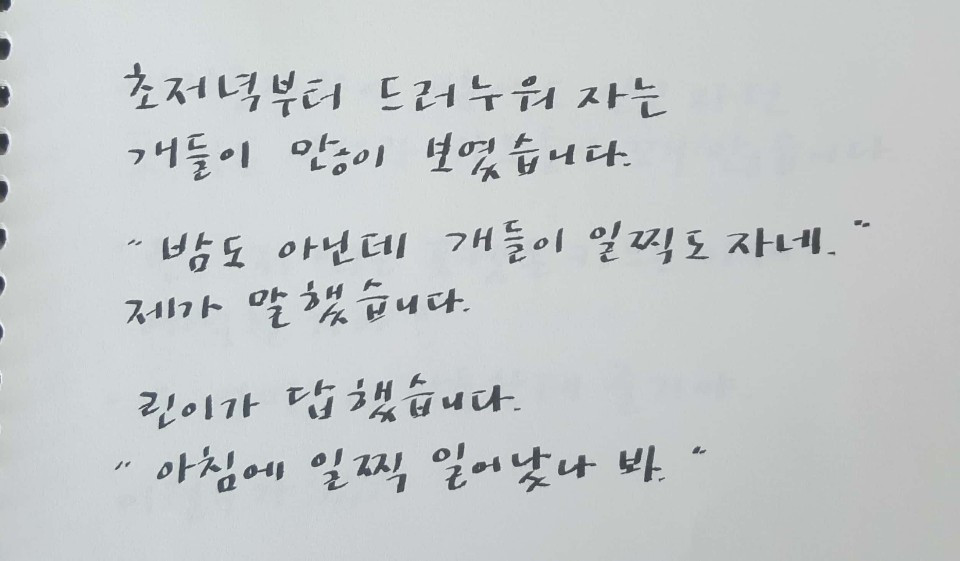 초저녁부터 드러누워 자는
개들이 많이 보였습니다.
"밤도 아닌데 개들이 일찍도 자네."
제가 말했습니다.
린이가 답했습니다.
"아침에 일찍 일어났나 봐."